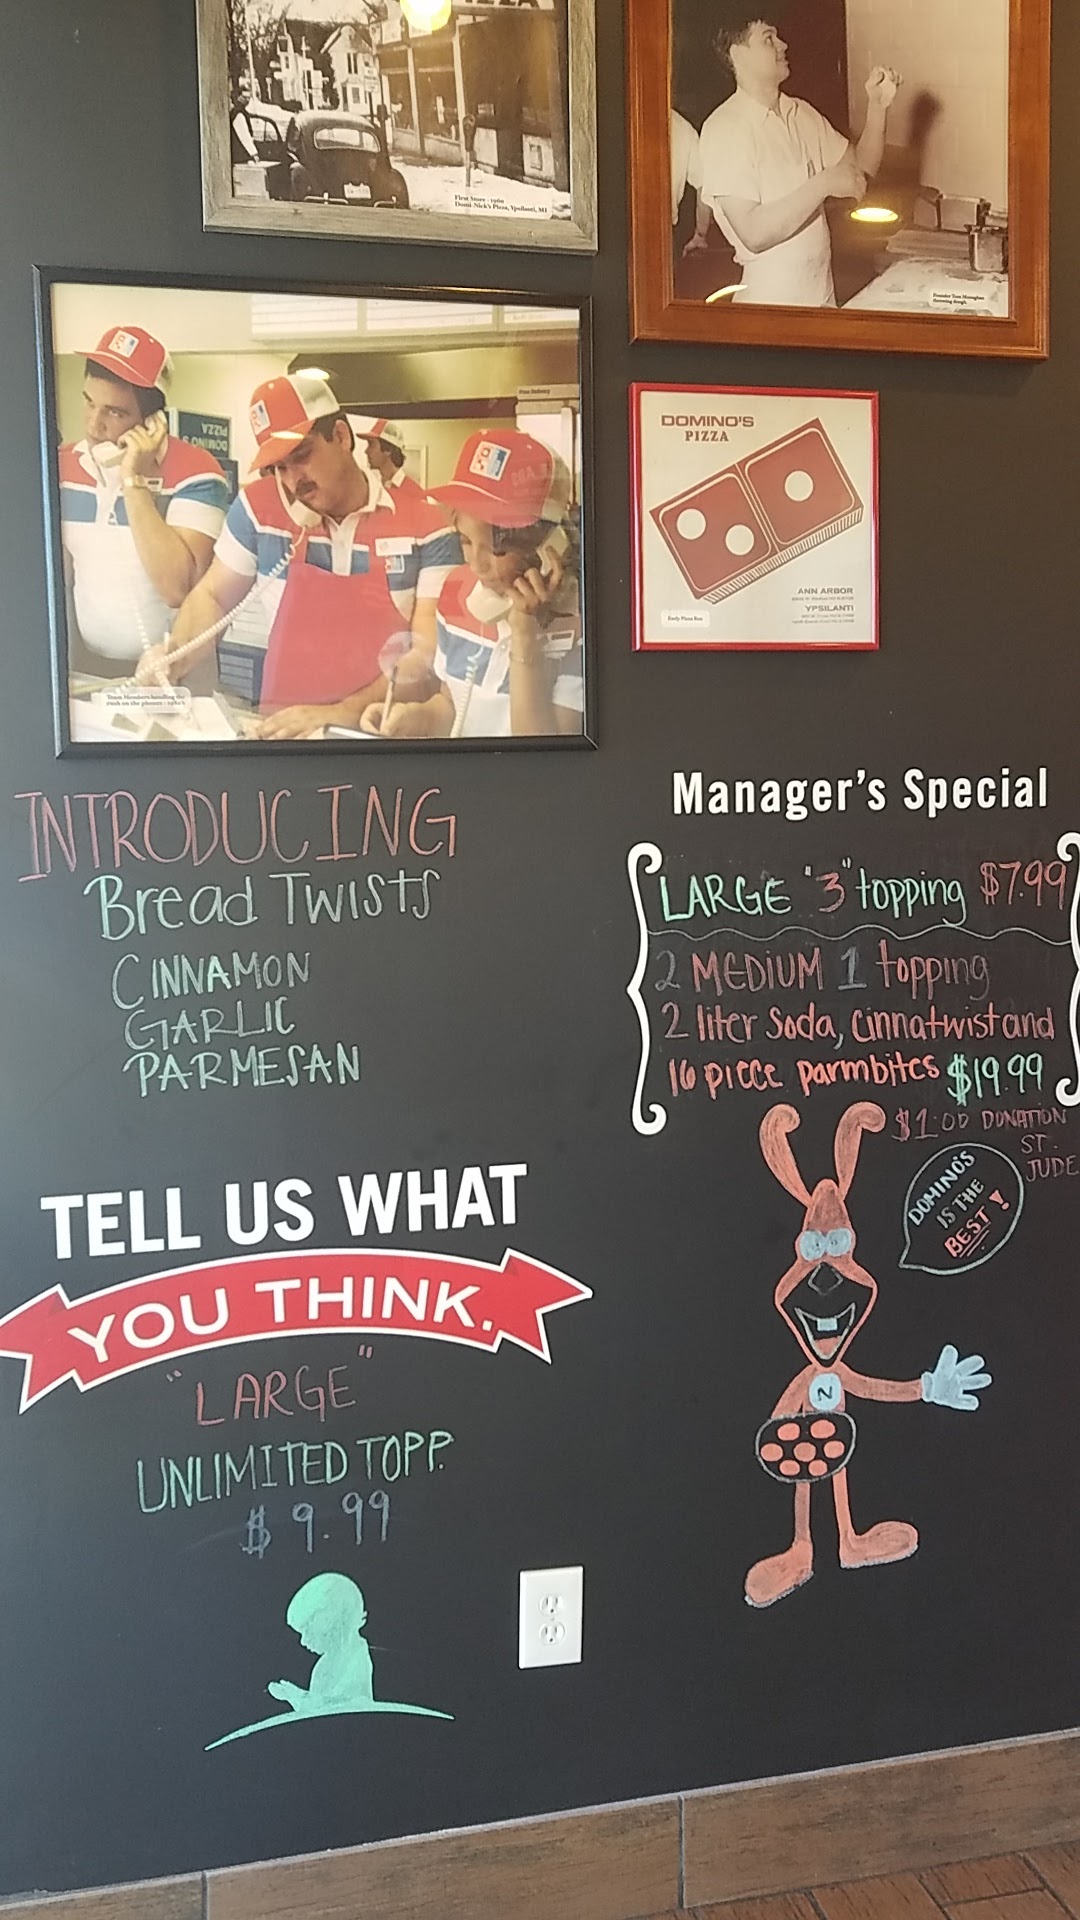 PIZZA
First Store - 1960
Domi-Nick's Pizza, Ypsilanti, MI
Founder Tom Monaghan
throwing dough.
DOMINO'S
PIZZA
Free Delivery
DOMINO'S
PIZZA
ANN ARBOR
YPSILANTI
Early Pizza Box
Team Members handling the
rush on the phones - 1980's
INTRODUCING
Bread Twists
CINNAMON
GARLIC
PARMESAN
Manager's Special
LARGE "3" topping $7.99
2 MEDIUM 1 topping
2 liter Soda, cinnatwist and
16 piece parmbites $19.99
$1.00 DONATION
ST.
JUDE
DOMINO'S
IS THE
BEST!
N
TELL US WHAT
YOU THINK.
"LARGE"
UNLIMITED TOPP.
$9.99